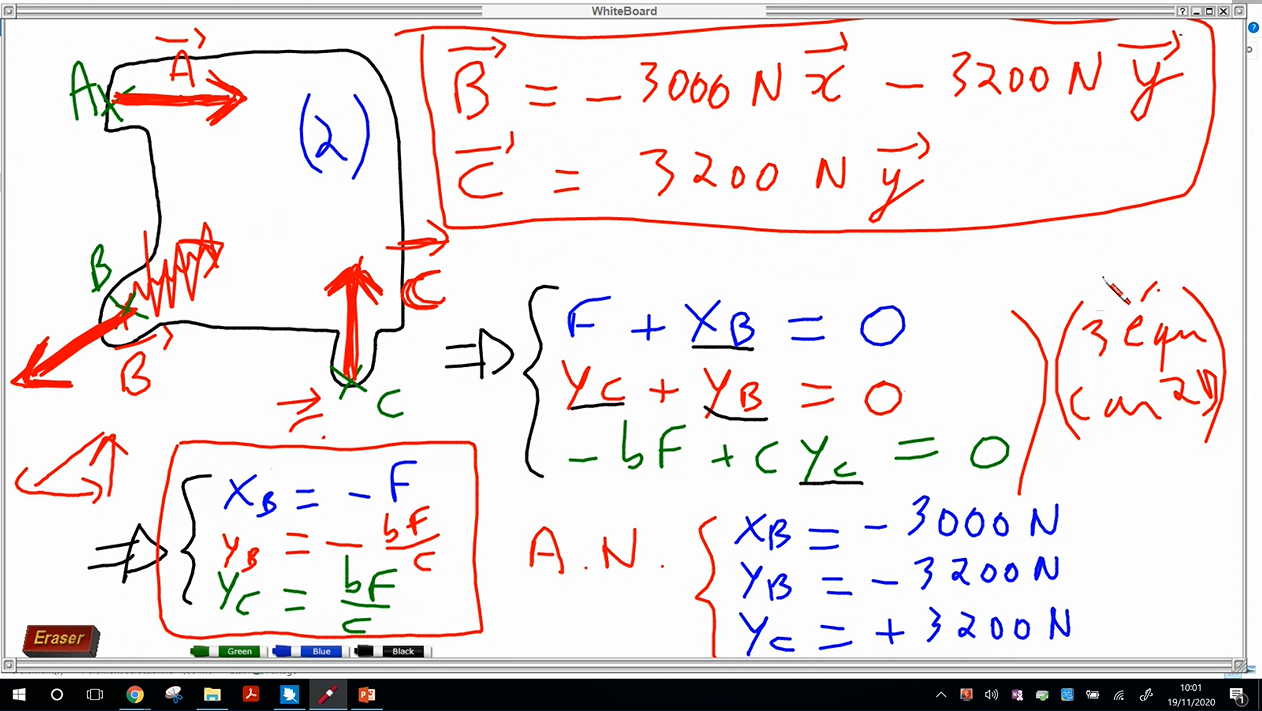 WhiteBoard
A
A
(2)
B
B
C
C
B = - 3000 N x - 3200 N y
C = 3200 N y
F + XB = 0
YC + YB = 0
- bF + c YC = 0
(3 équ
car 2D)
XB = - F
YB = - bF/c
YC = bF/c
A.N.
XB = - 3000 N
YB = - 3200 N
YC = + 3200 N
Eraser
Green
Blue
Black
10:01
19/11/2020